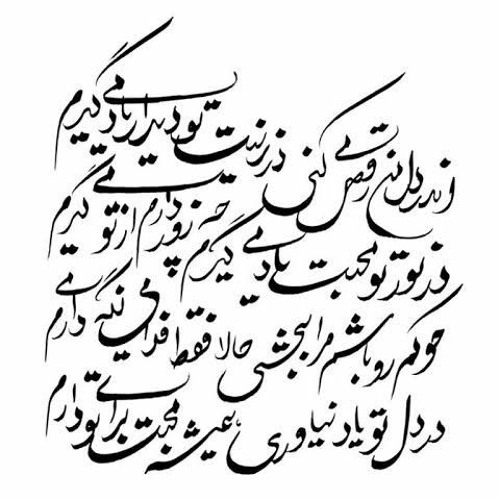 وندر دل من رقص می کنی در نیت تو دیدار یاد می گیرم
در نور تو محبت یاد می گیرم چه زور دارم از تو می گیرم
چو کم رو باشم مرا ببخشی حالا فقط می نگه دارم
در دل تو یاد دنیاوری، عیشه محبت برای تو دارم